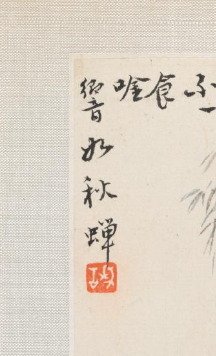 不
一
食
唫
響如秋蟬